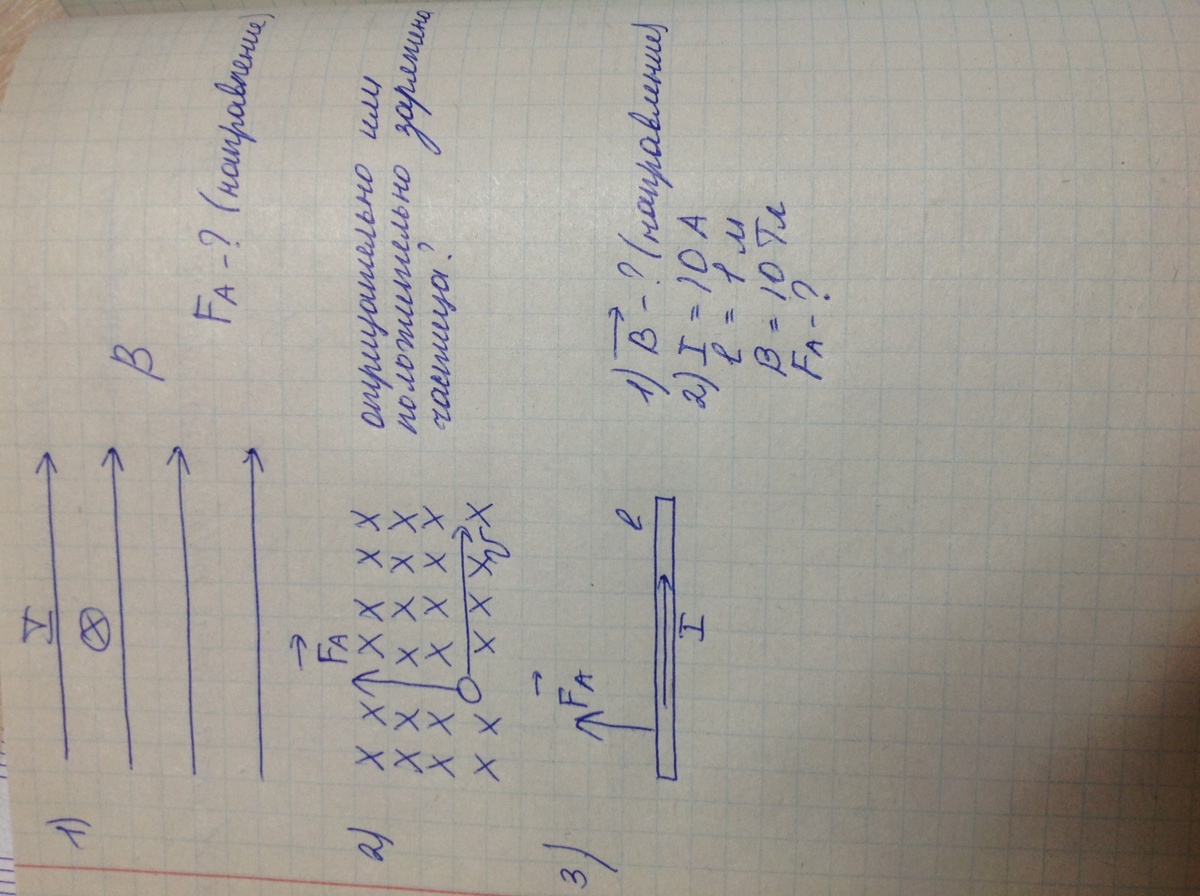 1)
I
B
F_A - ? (направление)
2)
F_A
x x x x x x
x x x x x x
x x x x x x
x x x x x x
v
отрицательно или
положительно заряжена
частица?
3)
F_A
l
I
1) B - ? (направление)
2) I = 10 А
l = 1 м
B = 10 Тл
F_A - ?